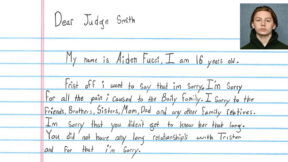 Dear Judge Smith
My name is Aiden Fucci, I am 16 years old.
Frist off i want to say that im sorry. I'm sorry
for all the pain i caused to the Baily Family. I sorry to the
friends, Brothers, Sisters, Mom, Dad and any other family relatives.
I'm sorry that you didn't get to know her that long.
You did not have any long relationships with Tristen
and for that i'm sorry.